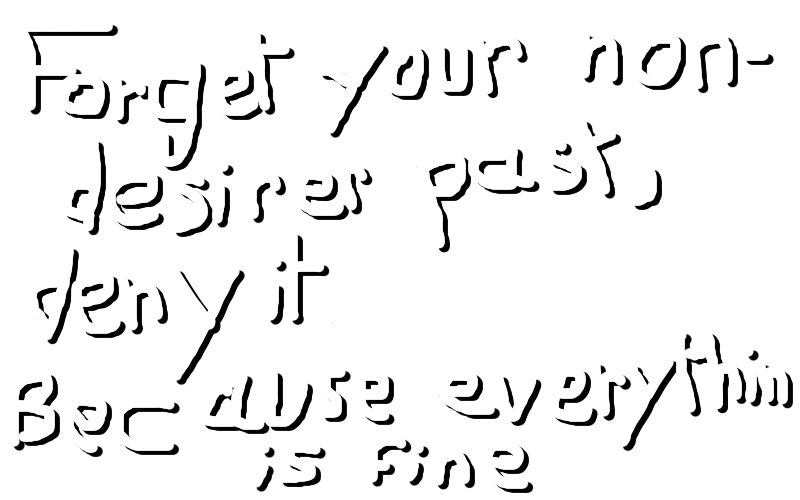 Forget your non-
desirer past,
deny it
Because everythin
is fine